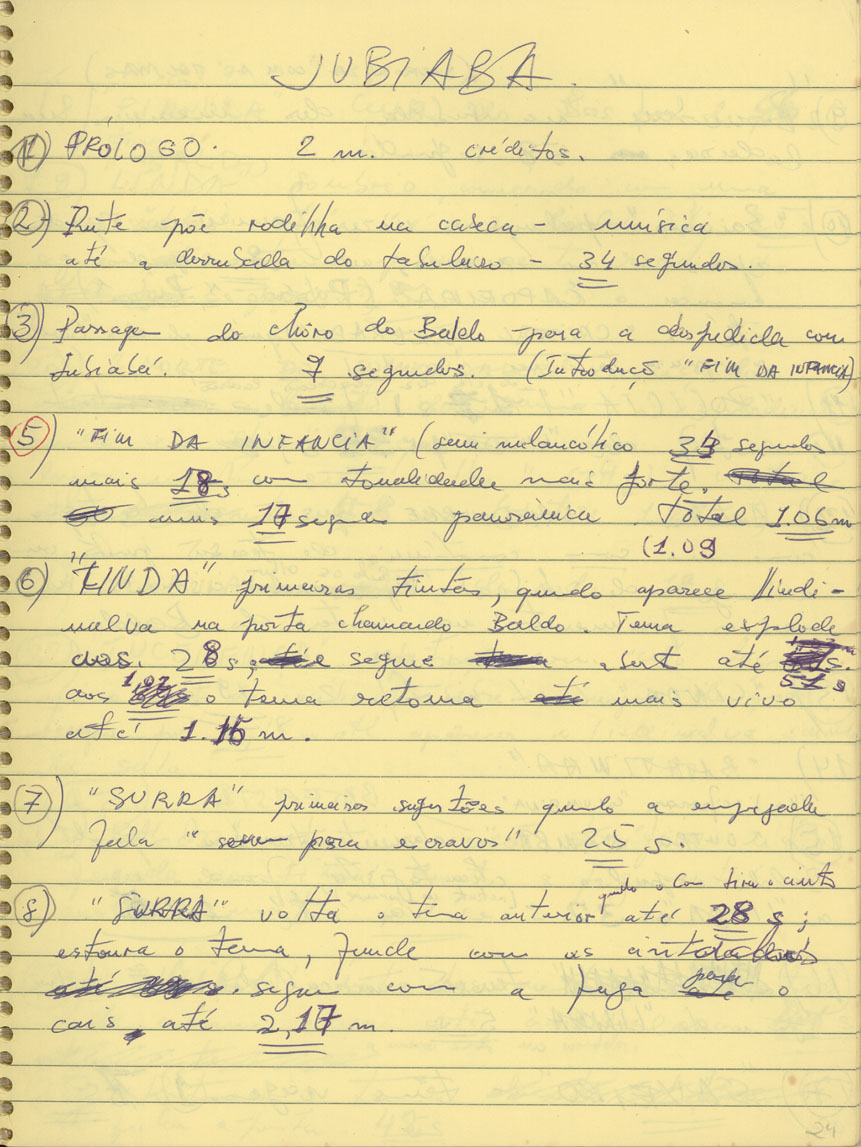 JUBIABA.
1) PRÓLOGO. 2 m. créditos.
2) Rute põe rodilha na cabeça - música
até a derrubada do tabuleiro - 34 segundos.
3) Passagem do chôro do Baldo para a despedida com
Jubiabá. 7 segundos. (Introduçõ "FIM DA INFANCIA)
5) "FIM DA INFANCIA" (semi melancólico segundos
mais 18s com tonalidade mais forte.
mais 17 segun panorâmica. total 1.06m
(1.09
6) "LINDA" primeiras tintas, quando aparece Lindi-
nalva na porta chamando Baldo. Tema explode
aos. 28 s, segue até
57s
aos 1.07 o tema retoma mais vivo
até 1.15 m.
7) "SURRA" primeiras sugestões quando a empregada
fala " para escravos" 25 s.
quando o Com tira o cinto
8) "SURRA" volta o tema anterior até 28 s;
estoura o tema, funde com as
segue com a fuga para o
cais, até 2,17 m.
24